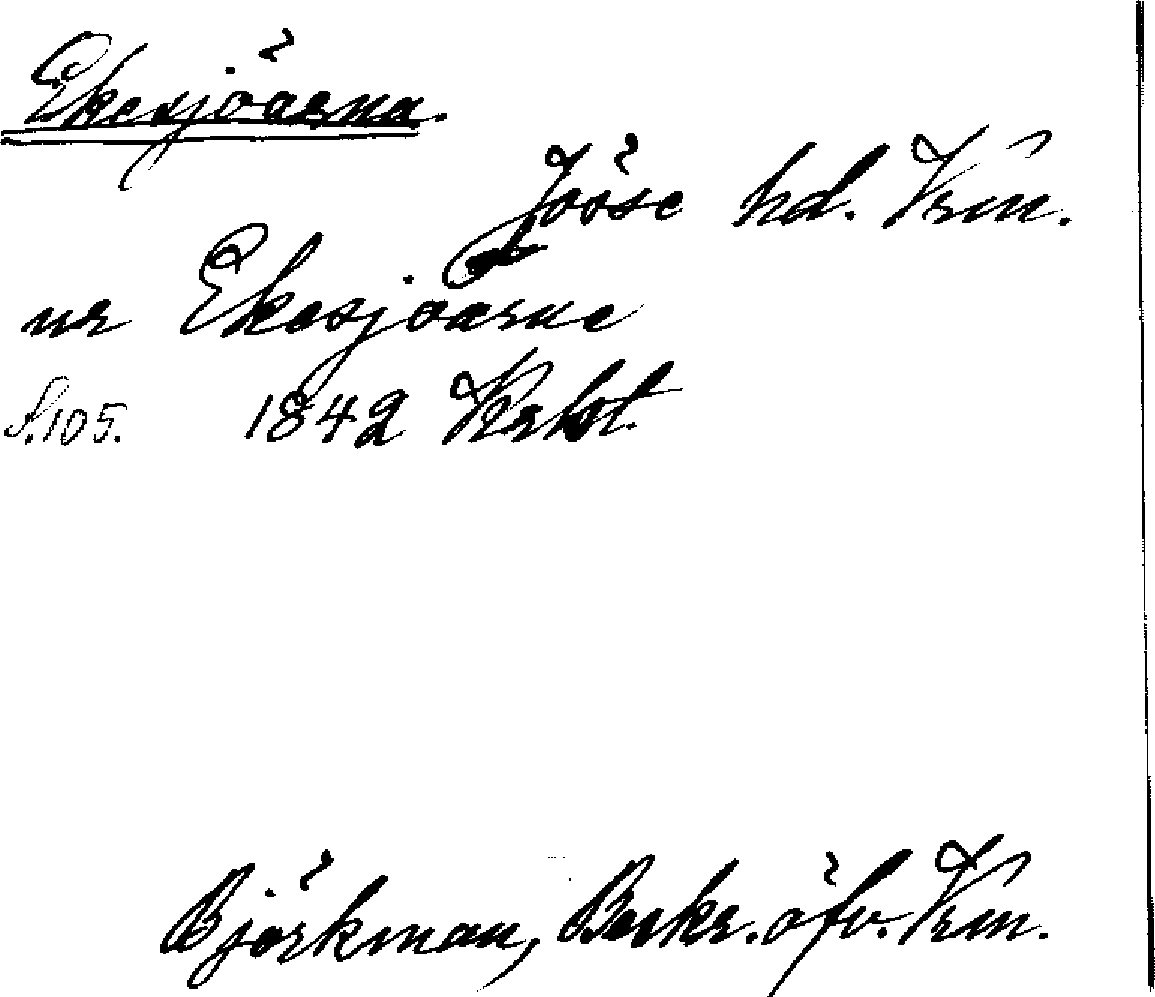 Ekesjöarna.
Jösse hd. Vrm.
ur Ekesjöarne
S. 105. 1842
Björkman, Beskr. öfv. Vrm.